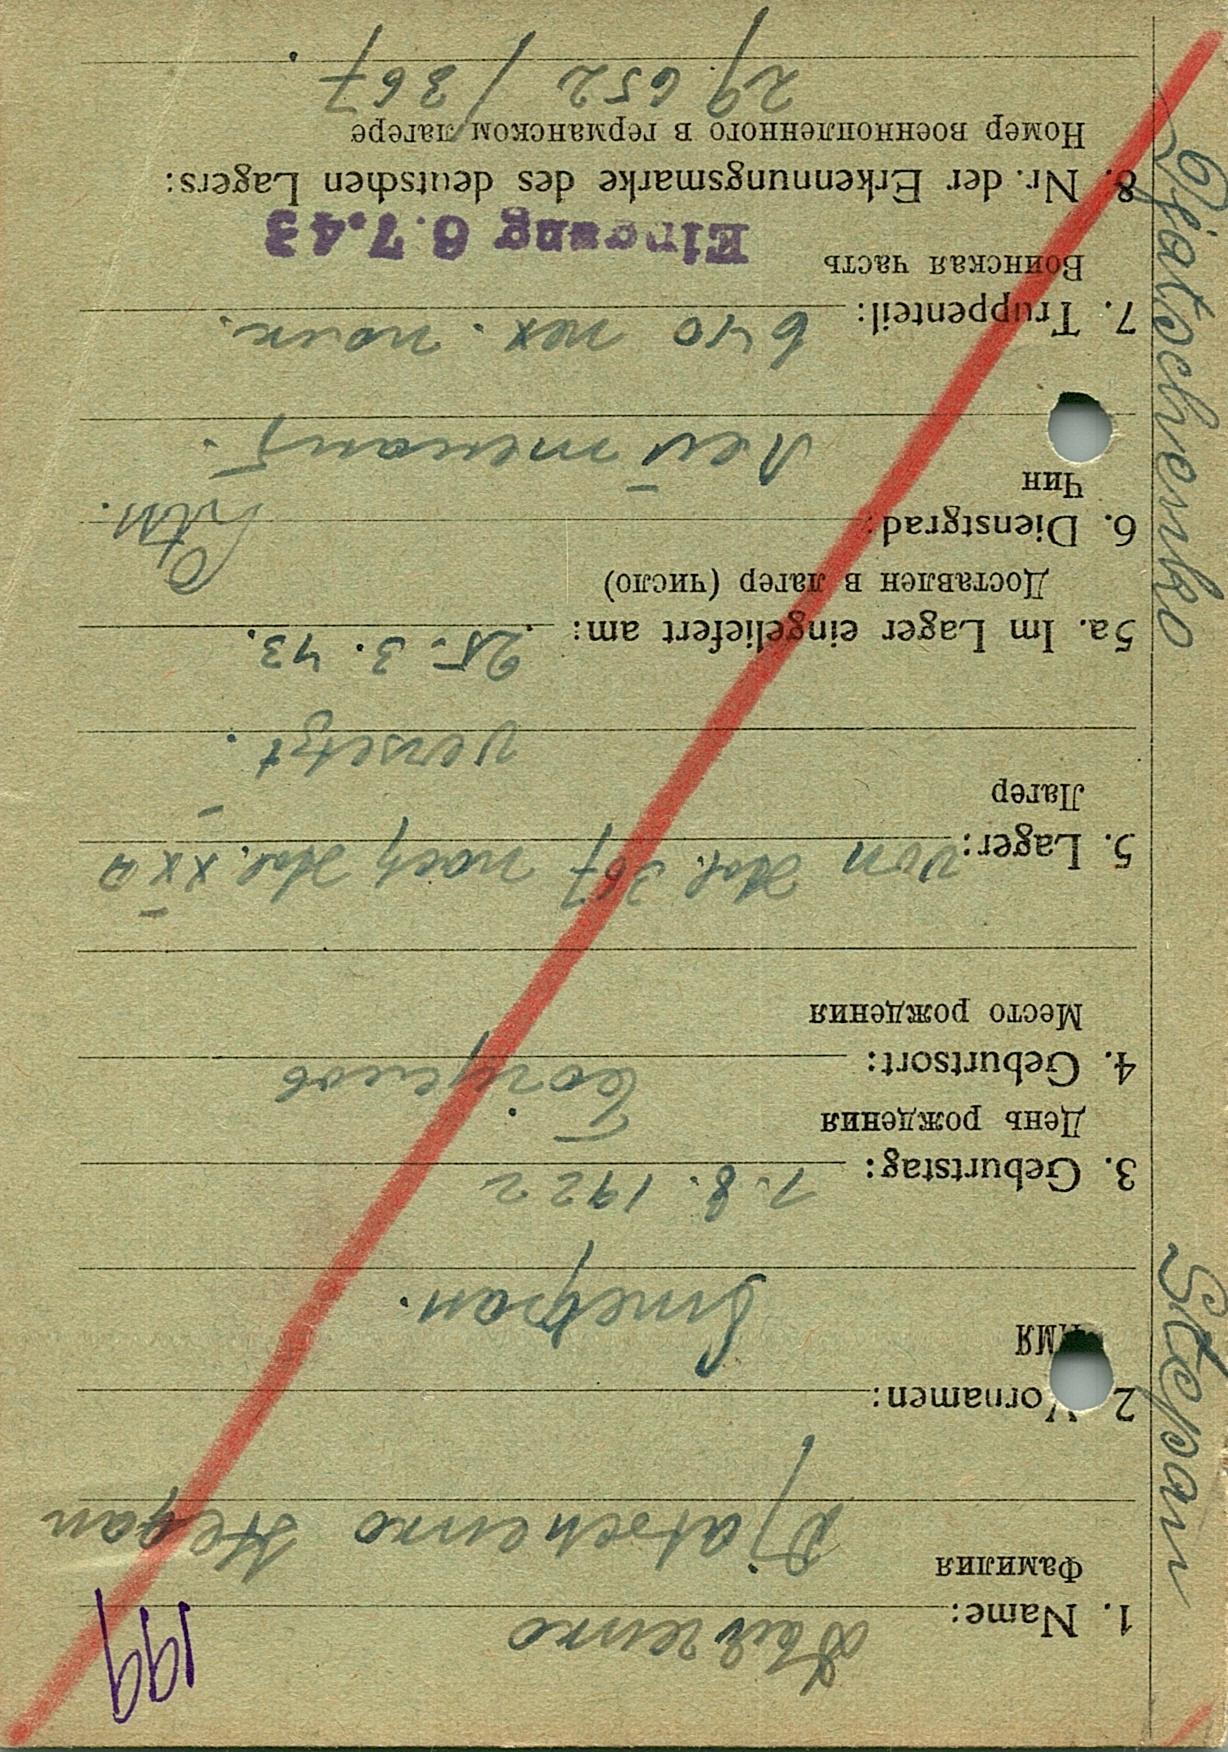 Djatschenko Stepan
199
1. Name:
Фамилия
Djatschenko Stepan
2 Vornamen:
Имя
Степан.
3. Geburtstag: 7. 8. 1922
День рождения
4. Geburtsort:
Место рождения
5. Lager: von Stal. 367 nach Stal. XX A
Лагер
versetzt.
5a. Im Lager eingeliefert am: 25. 3. 43.
Доставлен в лагер (число)
6. Dienstgrad:
Чин
Лейтенант.
7. Truppenteil: 640 мех. полк.
Воинская часть
Eingang 6.7.43
8. Nr. der Erkennungsmarke des deutschen Lagers:
Номер военнопленного в германском лагере
29 652 / 367